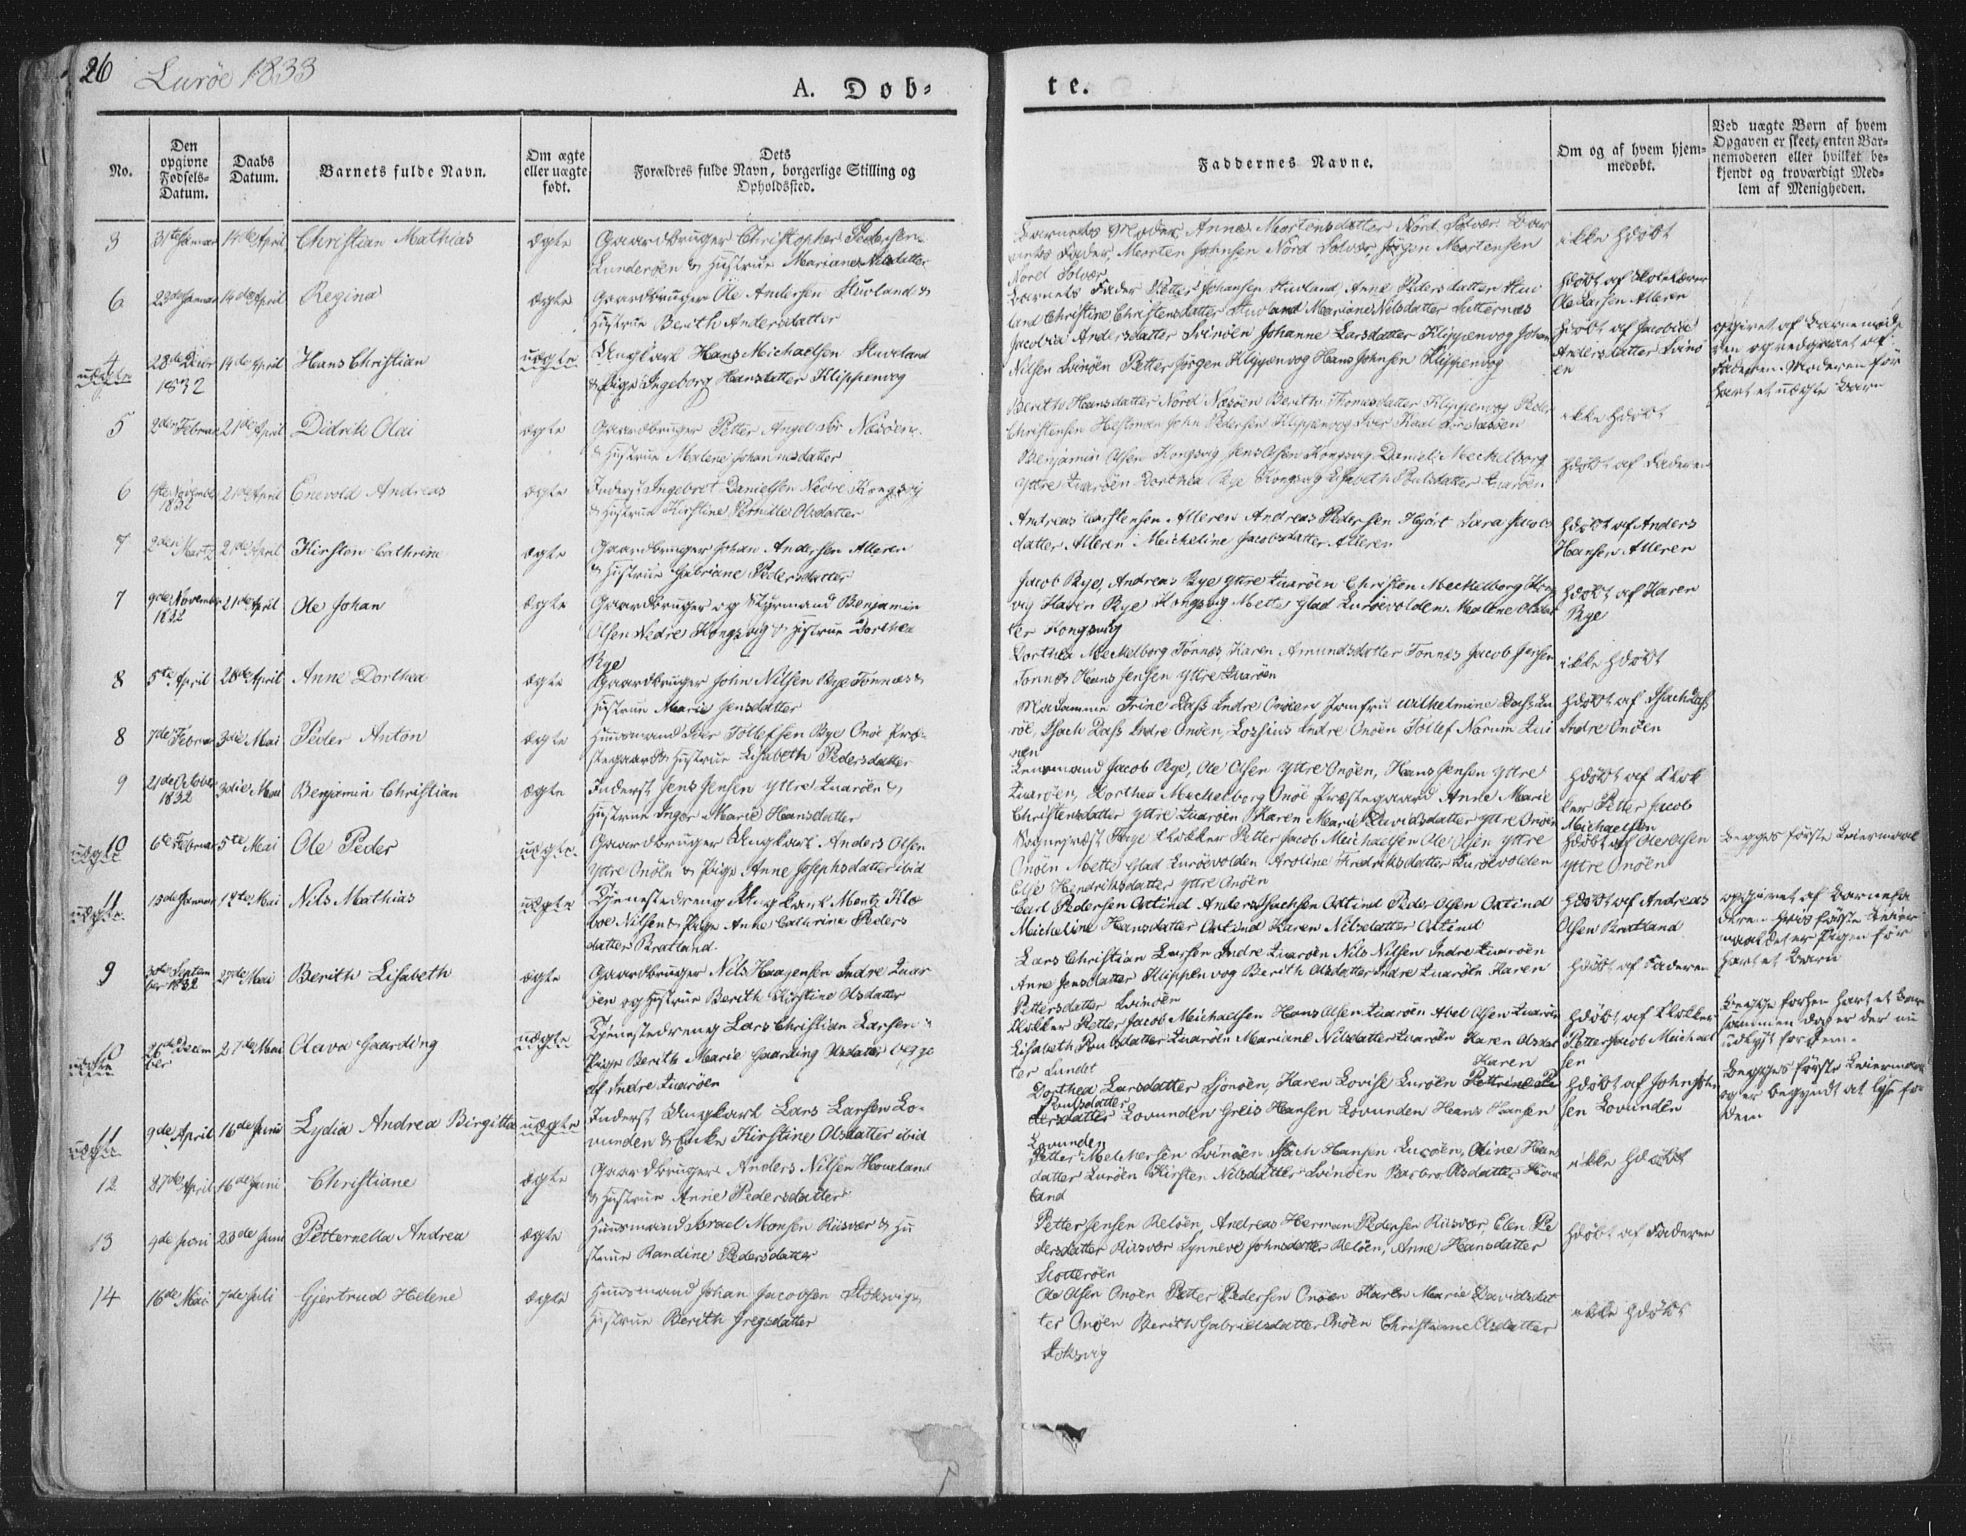 26 Lurøe 1833
A. Døb-
te.
No.
Den opgivne Fødsels-Datum.
Daabs Datum.
Barnets fulde Navn.
Om ægte eller uægte født.
Dets Forældres fulde Navn, borgerlige Stilling og Opholdssted.
Faddernes Navne.
Om og af hvem hjem-medøbt.
Ved uægte Børn af hvem Opgaven er skeet, enten Bar-nemoderen eller hvilket be-kjendt og troværdigt Med-lem af Menigheden.
3 31te Januar 14de April Christian Mathias ægte Gaardbruger Christopher Pedersen
Lunderøen & Hustrue Mariane Nilsdatter
Barnets Moder, Anne Mortensdatter Nord Solvær Bar
nets Fader, Morten Johnsen Nord Solvær, Jørgen Mortensen
Nord Solvær
ikke hdøbt
6 23de Januar 14de April Regina ægte Gaardbruger Ole Andersen Stuvland &
Hustrue Berith Andersdatter
Barnets Fader Petter Johansen Stuvland, Anne Pedersdatter Stuv
land Christine Christensdatter Stuvland Mariane Nilsdatter
hdøbt af Skolelærer
Ole Larsen Alleren
4 uægte 28de 1832 14de April Hans Christian uægte Ungkarl Hans Michaelsen Stuvland
& Pige Ingeborg Hansdatter Klippenvog
Jacobia Andersdatter Svinøen Johanne Larsdatter Klippenvog Johan
Nilsen Svinøen Petter Jørgen Klippenvog Hans Johnsen Klippenvog
hdøbt af Jacobia
Andersdatter Svinø
en
opgivet af Barnemode
ren og vedgaaet af
Faderen. Moderen før
havt et uægte Barn
5 2den Februar 21de April Didrik Olai ægte Gaardbruger Petter Angel Nesøen
& Hustrue Malene Johannesdatter
Berith Hansdatter Nord Nesøen Berith Thomasdatter Klippenvog Peder
Christensen Hestmon John Pedersen Klippenvog Iver Kaal Nesøen
ikke hdøbt
6 November 1832 21de April Enevold Andreas ægte Inderst Ingebret Danielsen Nedre Kongsvig
& Hustrue Kirstine Pernille Olsdatter
Benjamin Olsen Kongsvig Jens Olsen Kongsvig Daniel Meckelborg
Yttre Quarøen Dorthea Rye Kongsvig Elisabeth Poulsdatter Quarøen
hdøbt af Faderen
7 2den Martz 21de April Kirsten Cathrine ægte Gaardbruger Johan Andersen Alleren
& Hustrue Gabriane Pedersdatter
Andreas Carstensen Alleren Andreas Pedersen Hjort Sara Jacobs
datter Alleren Micheline Jacobsdatter Alleren
hdøbt af Anders
Hansen Alleren
7 9de November 1832 21de April Ole Johan ægte Gaardbruger og Styrmand Benjamin
Olsen Nedre Kongsvig & Hustrue Dorthea
Rye
Jacob Rye, Andreas Rye Yttre Quarøen Christen Meckelborg Kongs
vig Karen Rye Kongsvig Mette Glad Lurøevolden Malene Olsdat
ter Kongsvig
hdøbt af Karen
Rye
8 5te April 28de April Anne Dorthea ægte Gaardbruger John Nilsen Rye Tonnes &
Hustrue Marie Jensdatter
Dorthea Meckelborg Tonnes Karen Amundsdatter Tonnes Jacob Jensen
Tonnes Hans Jensen Yttre Quarøen
ikke hdøbt
8 7de Februar 3die Mai Peder Anton ægte Huusmand Iver Tollefsen Rye Onøe Præ-
stegaard & Hustrue Lisabeth Pedersdatter
Madamme Trine Dass Indre Onøen Jomfru Wilhelmine Dass Lu
røe, Isach Dass Indre Onøen, Lossius Indre Onøen Tollef Narum Qua
røen
hdøbt af Isach Dass
Indre Onøen
9 21de October 1832 3die Mai Benjamin Christian ægte Inderst Jens Jensen Yttre Quarøen &
Hustrue Inger Marie Hansdatter
Lensmand Jacob Rye, Ole Olsen Yttre Onøen, Hans Jensen Yttre
Quarøen, Dorthea Meckelborg Onøe Præstegaard Anne Marie
Christensdatter Yttre Quarøen Karen Marie Davidsdatter Yttre Onøen
hdøbt af Klok
ker Petter Jacob
Michaelsen
10 uægte 6te Februar 5te Mai Ole Peder uægte Gaardbruger Ungkarl Anders Olsen
Yttre Onøen & Pige Anne Josephsdatter ibid
Sognepræst Pilge Klokker Petter Jacob Michaelsen Ole Olsen Yttre
Onøen Mette Glad Lurøevolden Aroline Fredriksdatter Lurøevolden
Else Hendriksdatter Yttre Onøen
hdøbt af Ole Olsen
Yttre Onøen
Begges første Leiermaal
11 uægte 13de Januar 19te Mai Nils Mathias uægte Tjenestedreng Ungkarl Mentz Klo
boe Nilsen & Pige Anne Cathrine Peders
datter Bratland
Carl Pedersen Oxtind Anders Isachsen Oxtind Peder Olsen Oxtind
Micheline Hansdatter Oxtind Karen Nilsdatter Oxtind
hdøbt af Andreas
Olsen Bratland
opgivet af Barnefa
deren hvis første Leier
maal det er Pigen før
havt et Barn
9 30te September 1832 27de Mai Berith Lisabeth ægte Gaardbruger Nils Haagensen Indre Quar
øen og Hustrue Berith Kirstine Olsdatter
Lars Christian Larsen Indre Quarøen Nils Nilsen Indre Quarøen
Anne Jensdatter Klippenvog Berith Olsdatter Indre Quarøen Karen
Pettersdatter Svinøen
hdøbt af Faderen
10 uægte 26de December 27de Mai Olava Gaarding uægte Tjenestedreng Lars Christian Larsen &
Pige Berith Marie Gaarding Olsdatter begge
af Indre Quarøen
Klokker Petter Jacob Michaelsen Hans Olsen Quarøen Abel Olsen Quarøen
Lisabeth Poulsdatter Quarøen Mariane Nilsdatter Quarøen Karen Olsdat
ter Lundet
hdøbt af Klokker
Petter Jacob Michael
sen
Begge forhen havt et Barn
sammen dog er der nu
udlyst for dem.
11 uægte 9de April 16de Juni Lydia Andrea Birgitta uægte Inderst Ungkarl Lars Larsen Lo-
vunden & Enke Kirstine Olsdatter ibid
Dorthea Larsdatter Sjonøen, Karen Lovise Lurøen Pettrine Pe Karen
dersdatter Poulsdatter Lovunden Greis Hansen Lovunden Hans Hansen
Lovunden
hdøbt af John John
sen Lovunden
Begges første Leiermaal
og er begyndt at lyse for
dem
12 27de April 16de Juni Christiane ægte Gaardbruger Anders Nilsen Hoveland
& Hustrue Anne Pedersdatter
Petter Melchersen Svinøen Isach Hansen Lurøen, Oline Hans
datter Lurøen Kirsten Nilsdatter Svinøen Barbro Olsdatter Hove
land
ikke hdøbt
13 4de Juni 23de Juni Petternella Andrea ægte Huusmand Israel Monsen Riisvær & Hu
strue Randine Pedersdatter
Petter Jensen Reløen, Andreas Herman Pedersen Riisvær, Elen Pe
dersdatter Riisvær Synneve Johnsdatter Reløen, Anne Hansdatter
Slotterøen
hdøbt af Faderen
14 16de Mai 7de Juli Gjertrud Helene ægte Huusmand Johan Jacobsen Stoksvig &
Hustrue Berith Gregsdatter
Ole Olsen Onøen Petter Pedersen Onøen Karen Marie Davidsdat
ter Onøen Berith Gabrielsdatter Onøen Christiane Olsdatter
Stoksvig
ikke hdøbt